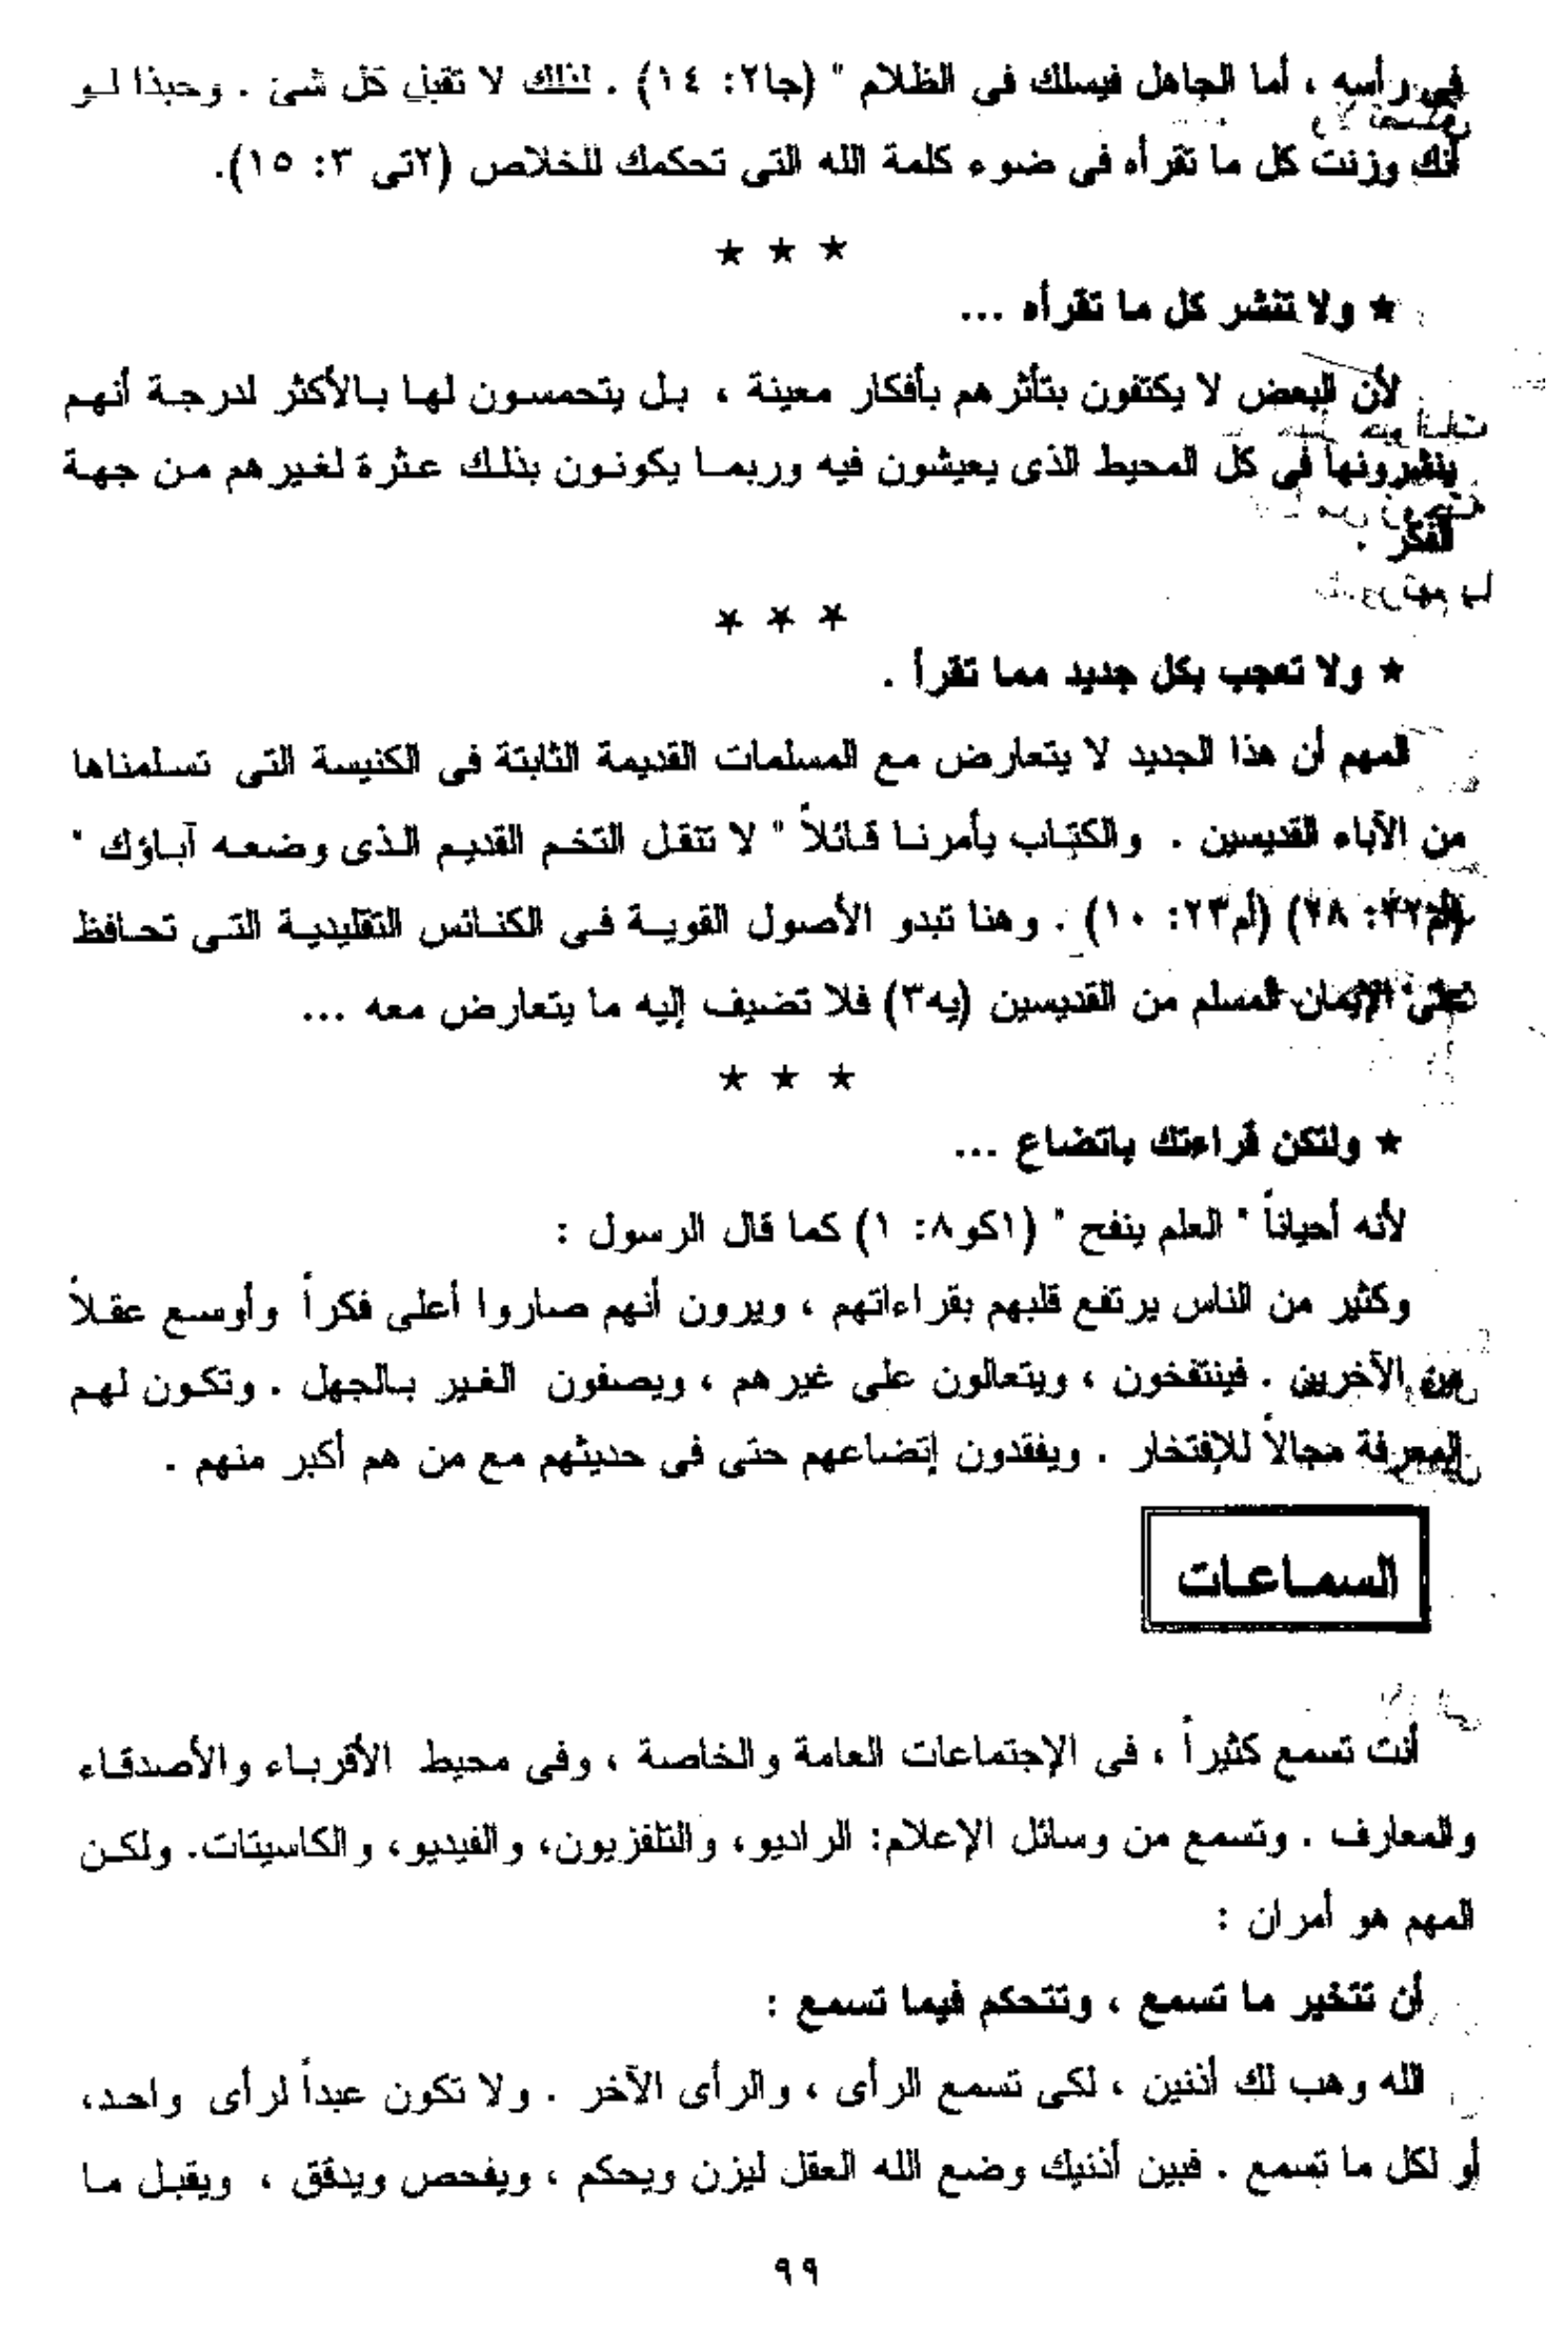 فى رأسه ، أما الجاهل فيسلك فى الظلام " (جا٢: ١٤) . لذلك لا تقبل كل شئ . وحبذا لو
أنك وزنت كل ما تقرأه فى ضوء كلمة الله التى تحكمك للخلاص (٢تى ٣: ١٥).
★ ★ ★
★ ولا تنشر كل ما تقرأه ...
لأن البعض لا يكتفون بتأثرهم بأفكار معينة ، بل يتحمسون لها بالأكثر لدرجة أنهم
ينشرونها فى كل المحيط الذى يعيشون فيه وربما يكونون بذلك عثرة لغيرهم من جهة
الفكر .
★ ★ ★
★ ولا تعجب بكل جديد مما تقرأ .
المهم أن هذا الجديد لا يتعارض مع المسلمات القديمة الثابتة فى الكنيسة التى تسلمناها
من الآباء القديسين . والكتاب يأمرنا قائلاً " لا تنقل التخم القديم الذى وضعه آباؤك "
(أم٢٢: ٢٨) (أم٢٣: ١٠) . وهنا تبدو الأصول القوية فى الكنائس التقليدية التى تحافظ
على الإيمان المسلم من القديسين (يه٣) فلا تضيف إليه ما يتعارض معه ...
★ ★ ★
★ ولتكن قراءتك باتضاع ...
لأنه أحياناً " العلم ينفح " (١كو٨: ١) كما قال الرسول :
وكثير من الناس يرتفع قلبهم بقراءاتهم ، ويرون أنهم صاروا أعلى فكراً وأوسع عقلاً
من الآخرين . فينتفخون ، ويتعالون على غيرهم ، ويصفون الغير بالجهل . وتكون لهم
المعرفة مجالاً للإفتخار . ويفقدون إتضاعهم حتى فى حديثهم مع من هم أكبر منهم .
السماعات
أنت تسمع كثيراً ، فى الإجتماعات العامة والخاصة ، وفى محيط الأقرباء والأصدقاء
والمعارف . وتسمع من وسائل الإعلام: الراديو، والتلفزيون، والفيديو، والكاسيتات. ولكن
المهم هو أمران :
أن تتخير ما تسمع ، وتتحكم فيما تسمع :
الله وهب لك أذنين ، لكى تسمع الرأى ، والرأى الآخر . ولا تكون عبداً لرأى واحد،
أو لكل ما تسمع . فبين أذنيك وضع الله العقل ليزن ويحكم ، ويفحص ويدقق ، ويقبل ما
٩٩